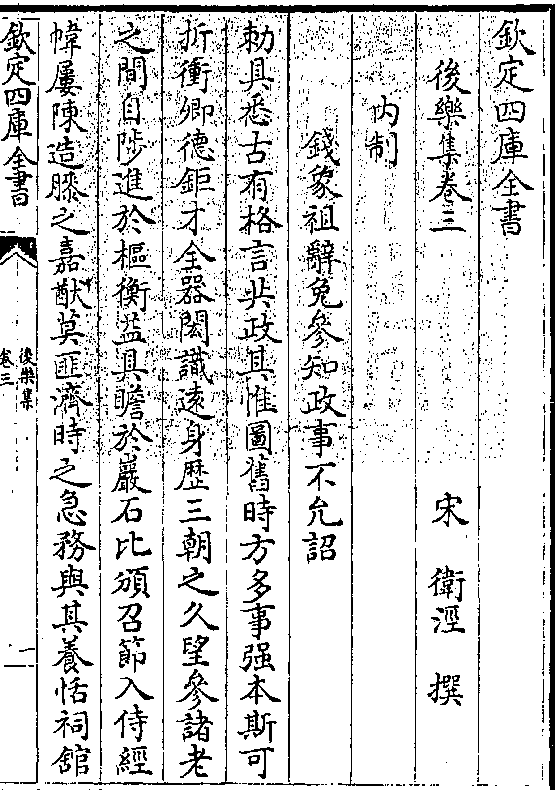 欽定四庫全書
後樂集卷三
宋 衛涇 撰
内制
錢象祖辭免參知政事不允詔
勅具悉古有格言共政具惟圖舊時方多事强本斯可
折衝卿德鉅才全器閎識逺身歴三朝之久望參諸老
之間自陟進於樞衡益具瞻於巖石比頒召節入侍經
幃屢陳造膝之嘉猷莫匪濟時之急務與其養恬祠舘
欽定四庫全書
後樂集
卷三
一